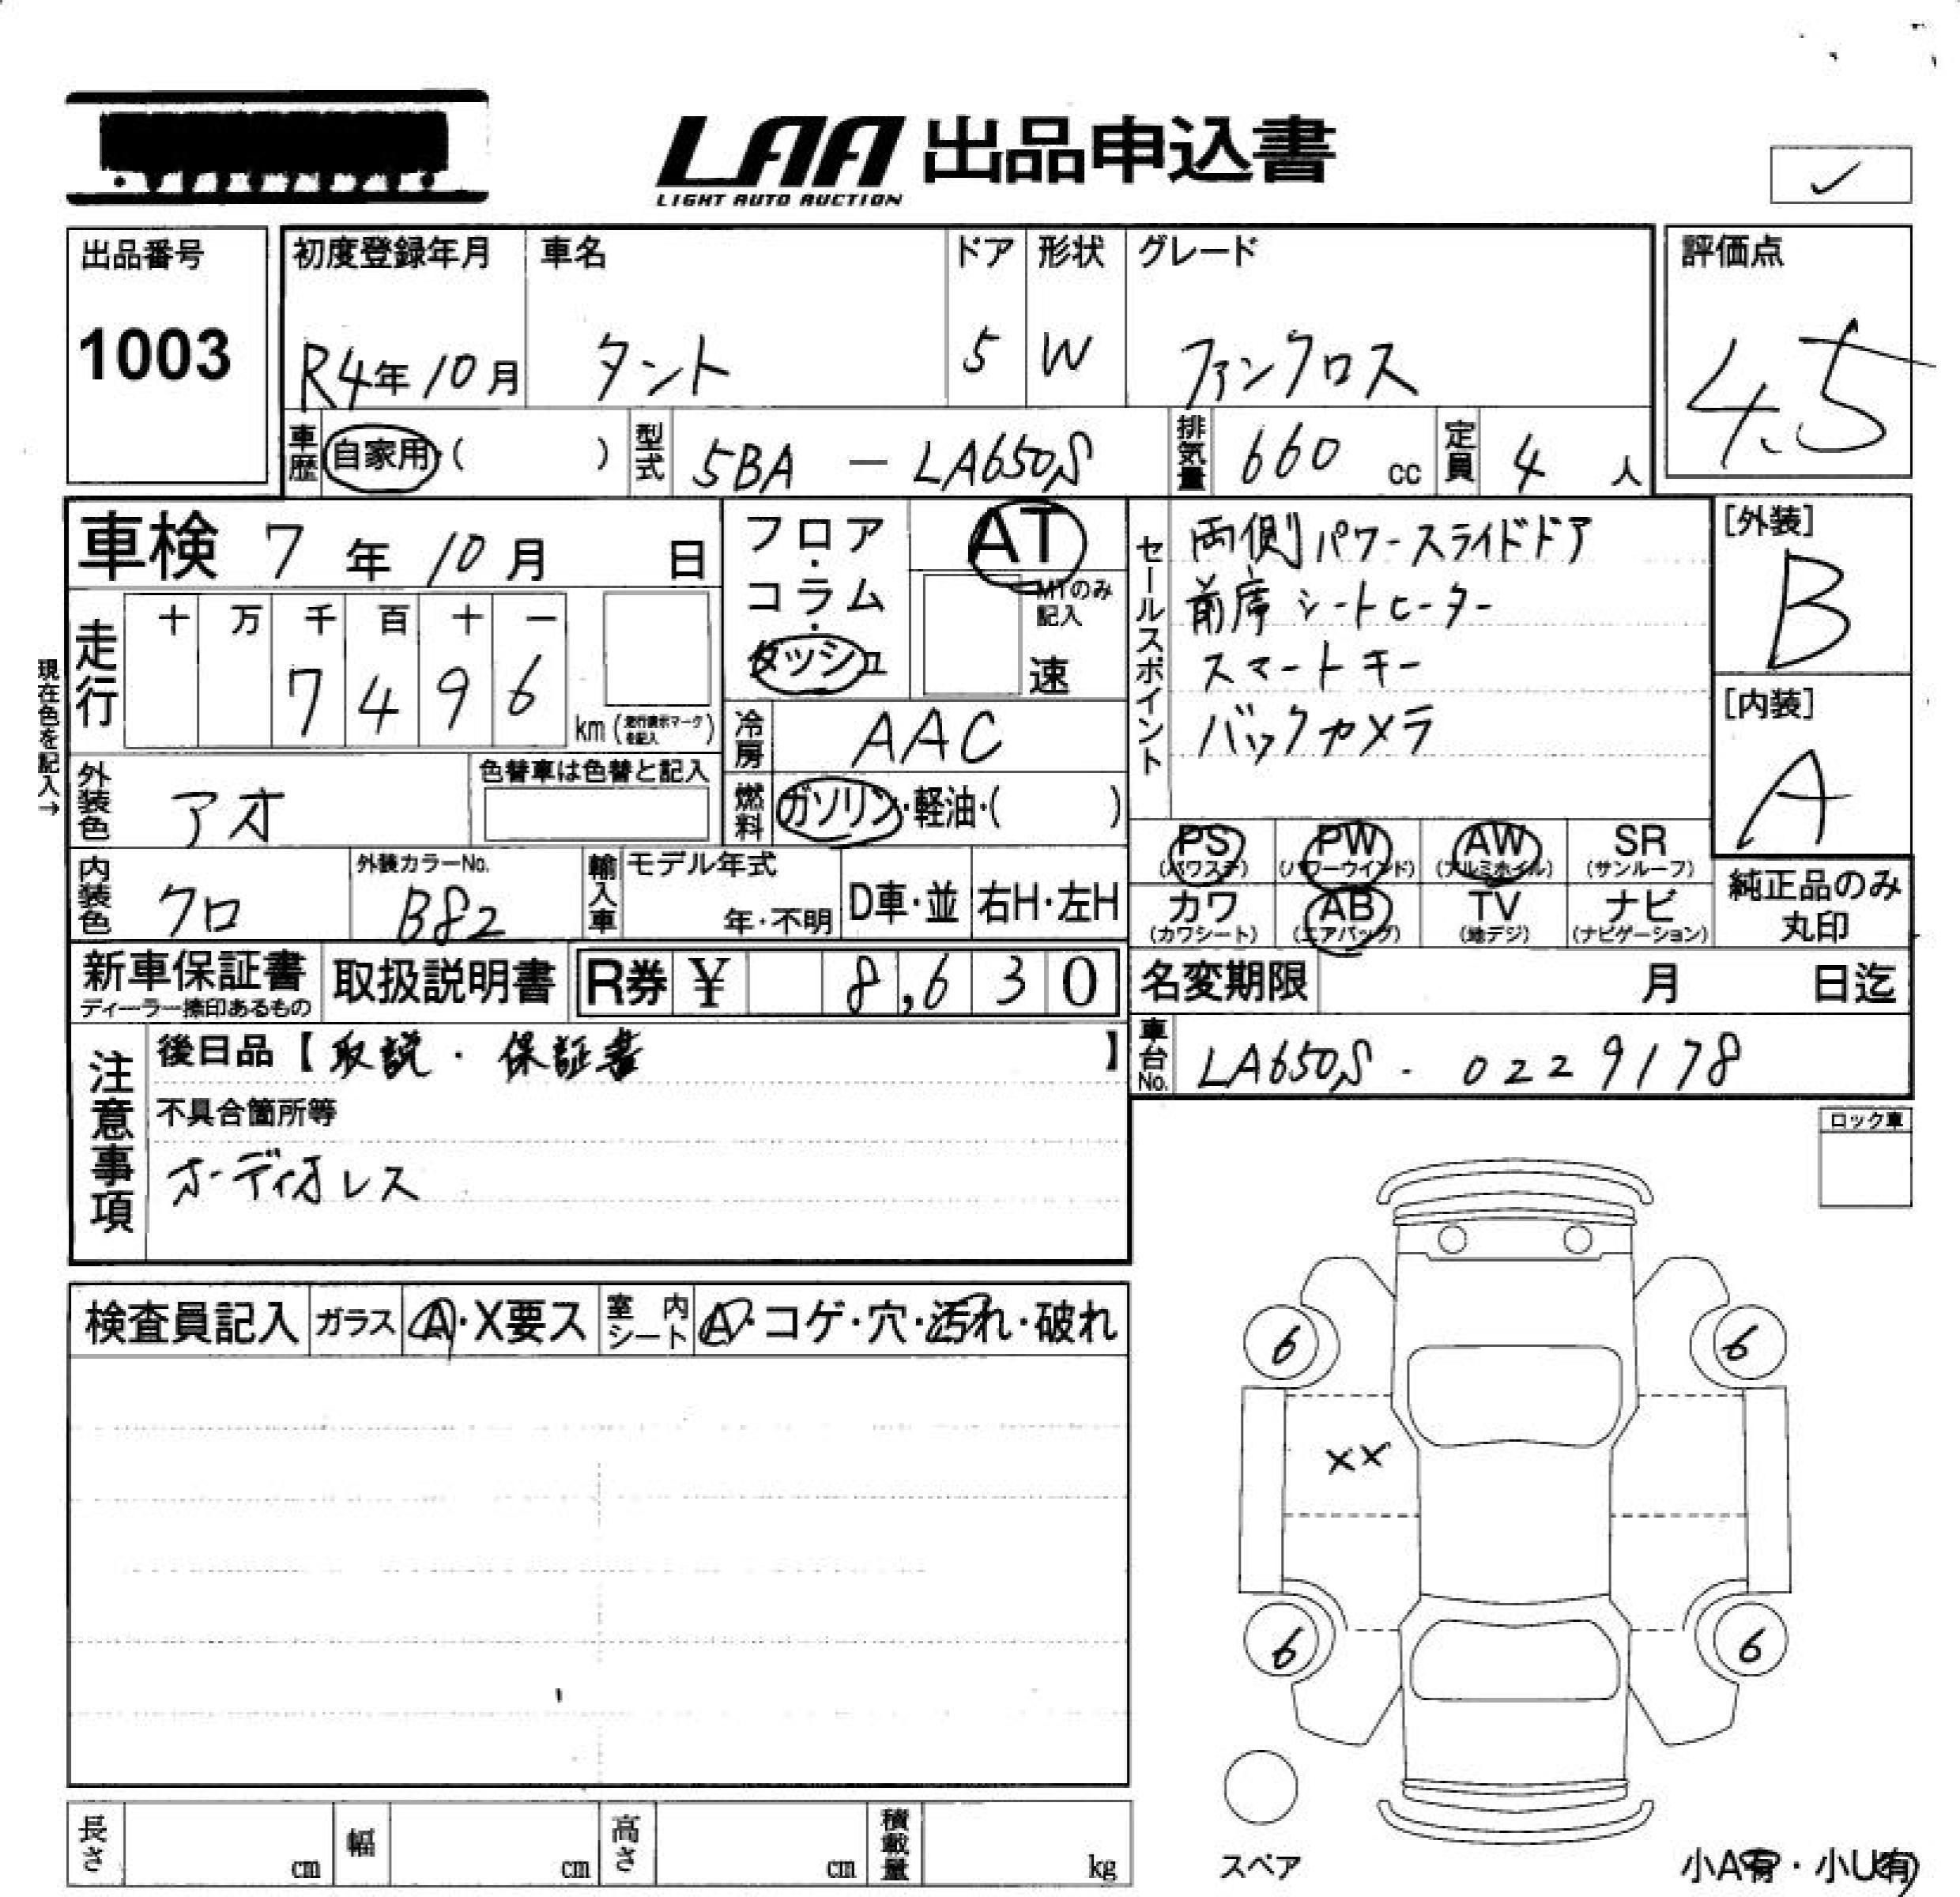 LAA 出品申込書
LIGHT AUTO AUCTION
✓
出品番号
1003
初度登録年月 車名 ドア 形状 グレード
R4年10月 タント 5 W ファンクロス
評価点
4.5
車歴 自家用・( ) 型式 5BA - LA650S 排気量 660 cc 定員 4 人
車検 7年10月 日
フロア・コラム・ダッシュ
AT
MTのみ記入
速
セールスポイント
両側パワースライドドア
前席シートヒーター
スマートキー
バックカメラ
[外装]
B
[内装]
A
現在色を記入→
走行 十 万 千 百 十 一
7 4 9 6
km(走行表示マークを記入)
冷房 AAC
外装色 アオ
色替車は色替と記入
燃料 ガソリン・軽油・( )
PS (パワステ) PW (パワーウインド) AW (アルミホイル) SR (サンルーフ)
カワ (カワシート) AB (エアバッグ) TV (地デジ) ナビ (ナビゲーション)
純正品のみ
丸印
内装色 クロ
外装カラーNo.
B82
輸入車 モデル年式
年・不明
D車・並 右H・左H
新車保証書
ディーラー捺印あるもの
取扱説明書
R券 ¥ 8,630
名変期限 月 日迄
車台No. LA650S - 0229178
注意事項
後日品【取説・保証書】
不具合箇所等
オーディオレス
ロック車
検査員記入 ガラス A・X要ス 室内シート A・コゲ・穴・汚れ・破れ
6 6
××
6 6
スペア
小A有・小U有
長さ cm 幅 cm 高さ cm 積載量 kg